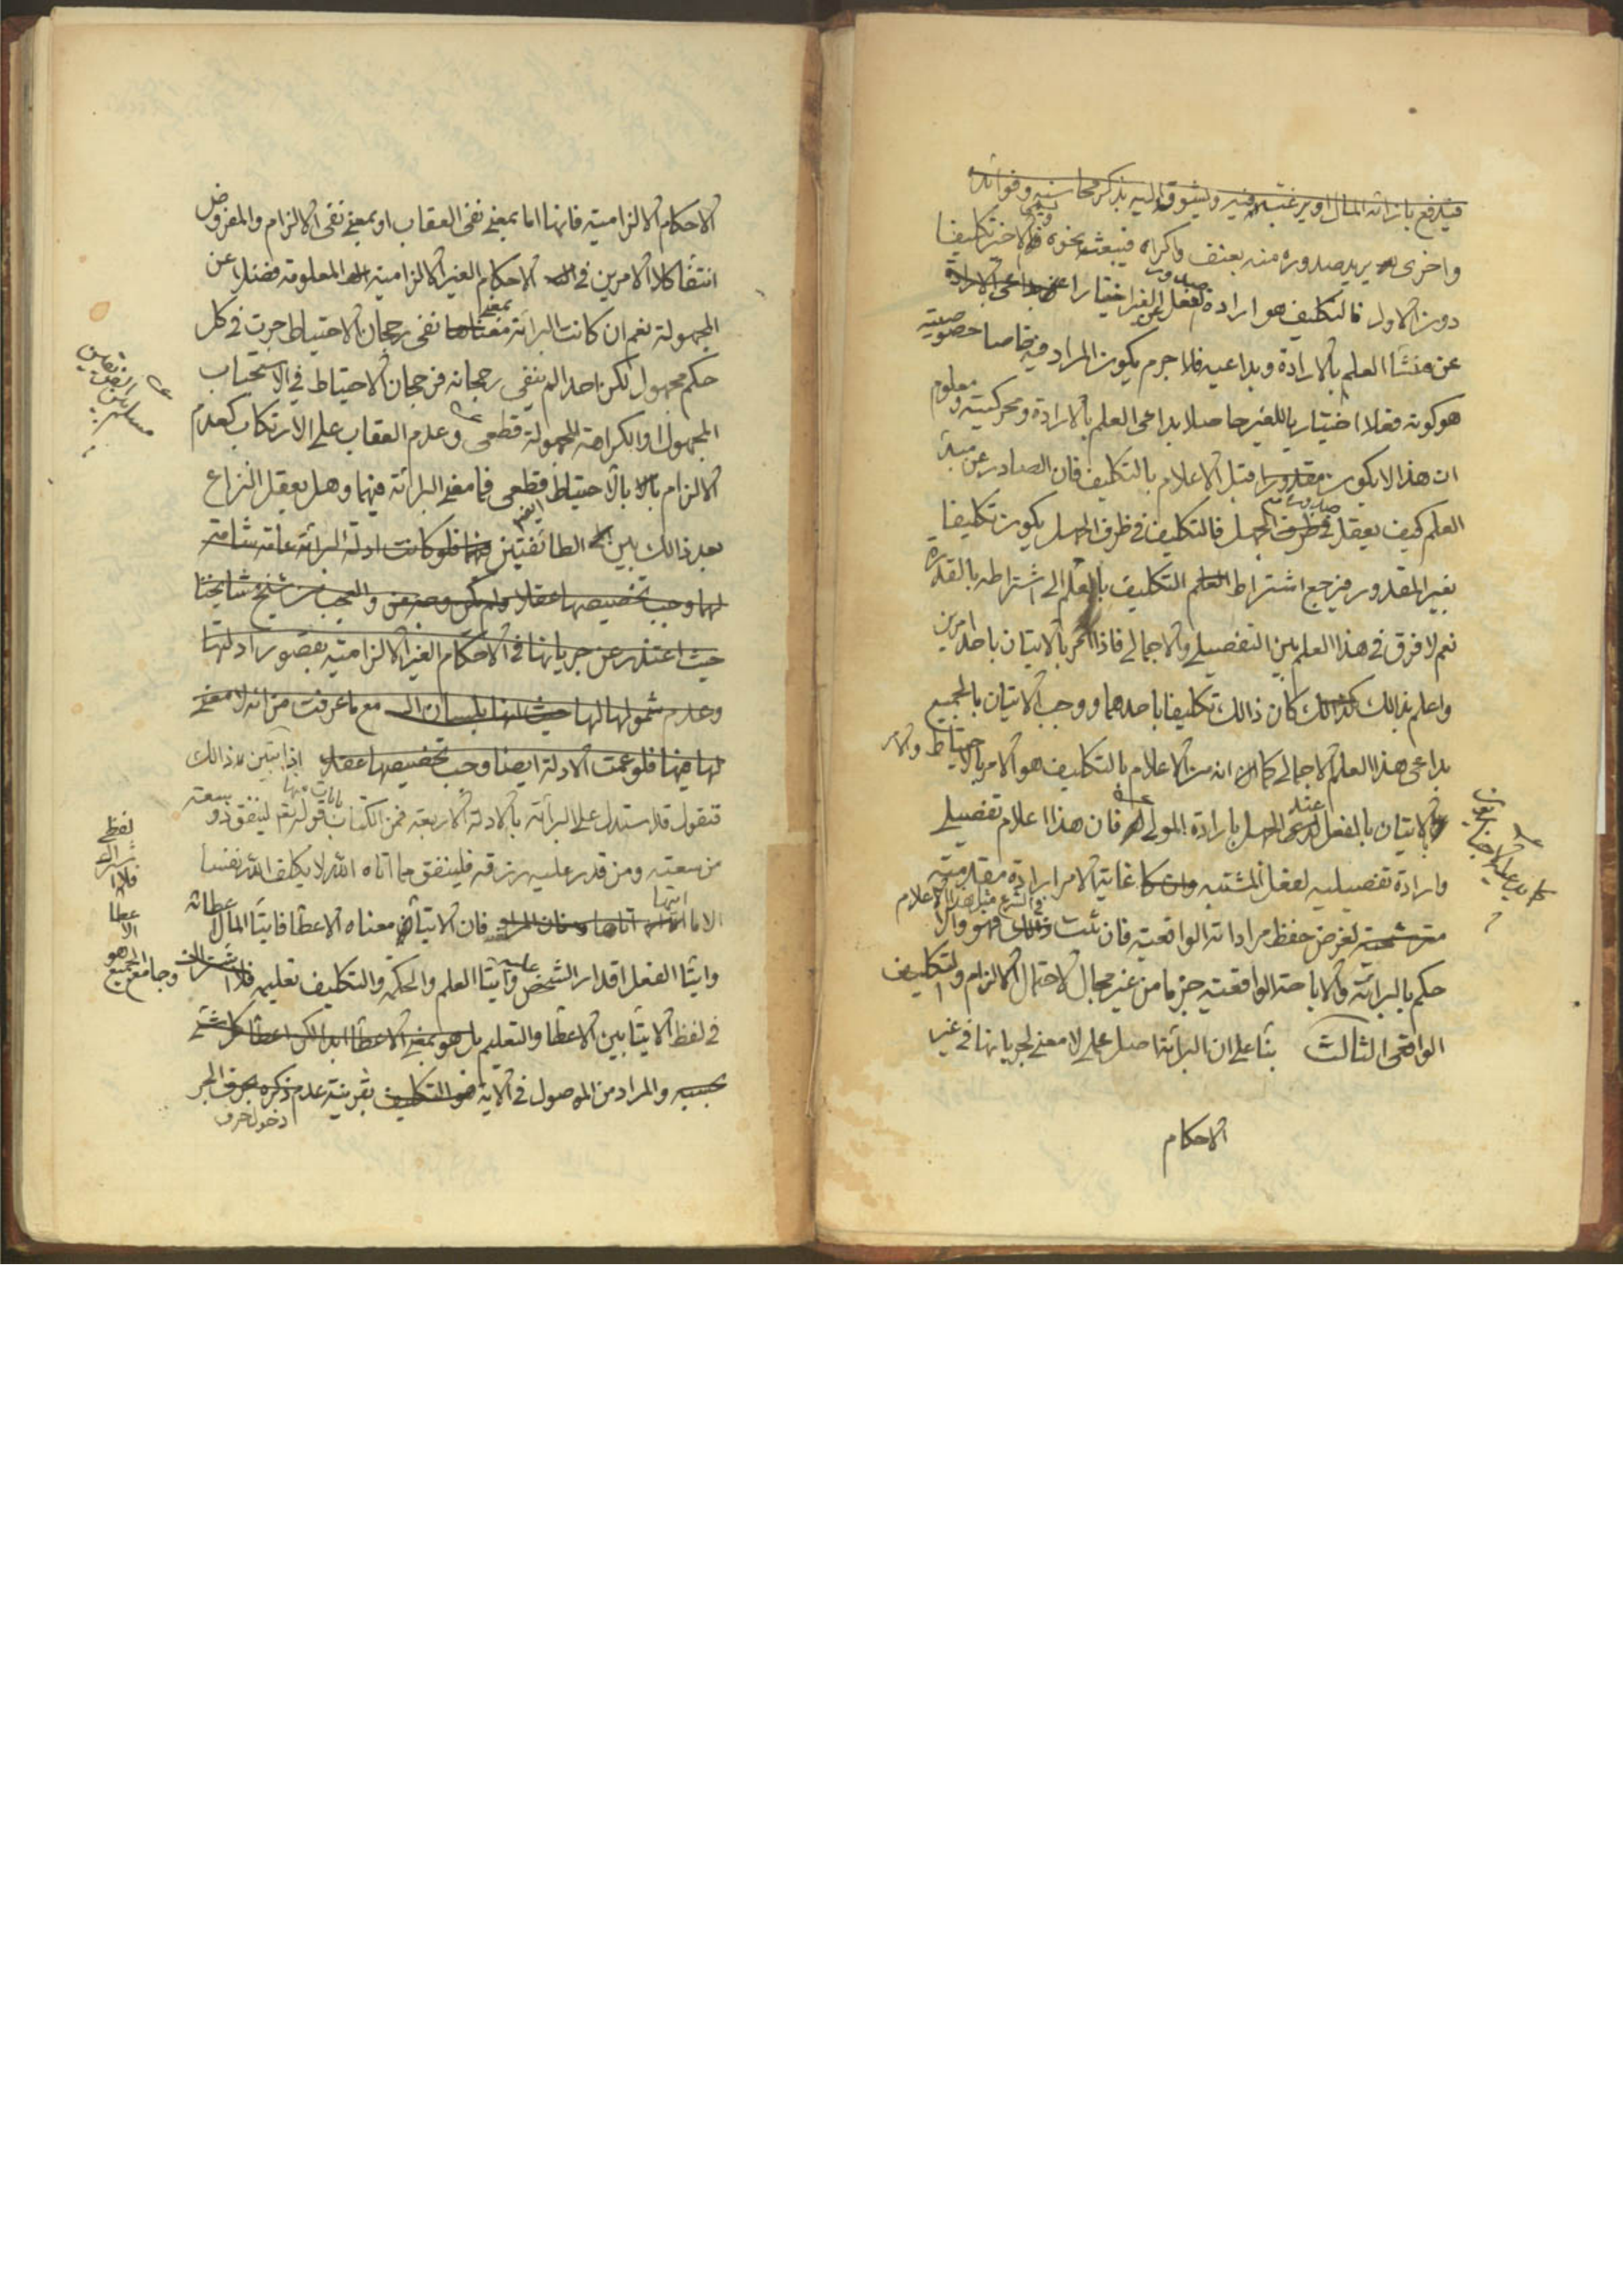 فيدفع بازائه المال او يرغبه فيه وليشوقه اليه بذكر محاسنه وفوائده
واخرى يريد صدوره منه بعنف واكراه فيبعثه بنحوه ويسمى الاخير تكليفا
دون الاول فالتكليف هو ارادة صدور الفعل عن الغير اختيارا
عن منشأ العلم بالارادة وبداعيه فلا جرم يكون المراد فيه خاصا خصوصيته
هو كونه فعلا اختياريا للغير حاصلا بداعى العلم بالارادة ومحركيته ومعلوم
ان هذا لا يكون مقدورا قبل الاعلام بالتكليف فان الصادر عن مبدأ
العلم كيف يعقل صدوره فى ظرف الجهل فالتكليف فى ظرف الجهل يكون تكليفا
بغير المقدور فيرجع اشتراط التكليف بالعلم الى اشتراطه بالقدرة
نعم لا فرق فى هذا العلم بين التفصيلى والاجمالى فاذا امر بالاتيان باحد امرين
واعلم بذالك كان ذالك تكليفا باحدهما ووجب الاتيان بالجميع
بداعى هذا العلم الاجمالى كما ان من الاعلام بالتكليف هو الامر بالاحتياط والامر
بالاتيان بالفعل عند الجهل بارادة المولى له فان هذا اعلام تفصيلى
وارادة تفصيليه لفعل المشتبه غاية الامر ارادة مقدمية
لغرض حفظ مراداته الواقعية فان ثبت فى الشرع مثل هذا الاعلام فهو والا
حكم بالبرائة والاباحة الواقعيه جزما من غير مجال لاحتمال الالزام والتكليف
الواقعى الثالث بنأ على ان البرائة اصل عملى لا معنى لجريانها فى غير
الاحكام
الاحكام الالزاميه فانها اما بمعنى نفى العقاب او بمعنى نفى الالزام والمفروض
انتفأ كلا الامرين فى الاحكام الغير الالزامية المعلومة فضلا عن
المجهولة نعم ان كانت البرائة بمعنى نفى رجحان الاحتياط جرت فى كل
حكم مجهول لكن احدا لم ينفى رجحانه فرجحان الاحتياط فى الاستحباب
المجهول او الكراهة المجهولة قطعى وعدم العقاب على الارتكاب كعدم
الالزام بالاحتياط قطعى فما معنى البرائة فيهما وهل يعقل النزاع
بعد ذالك بين الطائفتين فلو كانت ادلة البرائة عامة شاملة
لهما وجب تخصيصها عقلا ولم يكن وجه والعجب من شيخ مشايخنا
حيث اعتذر عن جريانها فى الاحكام الغير الالزامية بقصور ادلتها
وعدم شمولها لها مع ما عرفت من انه لا معنى
لها فيها فلو عمت الادلة ايضا وجب تخصيصها عقلا اذا تبين ذالك
فنقول قد استدل على البرائة بالادلة الاربعة فمن الكتاب بايات منها قوله تعم لينفق ذو سعة
من سعته ومن قدر عليه رزقه فلينفق مما اتاه الله لا يكلف الله نفسا
الا ما اتيها فان الايتأ معناه الاعطأ فايتأ المال اعطائه
وايتأ الفعل اقدار الشخص عليه وايتأ العلم والحكمة والتكليف تعليمه فلا اشتراك
فى لفظ الايتأ بين الاعطأ والتعليم بل هو بمعنى الاعطأ ابدا لكن اعطأ كل شئى
بحسبه والمراد من الموصول فى الاية هو التكليف بقرينة عدم ذكره بحرف الجر
دخول حرف
لفظى
فلا
الاعطا
وجامع الجميع هو